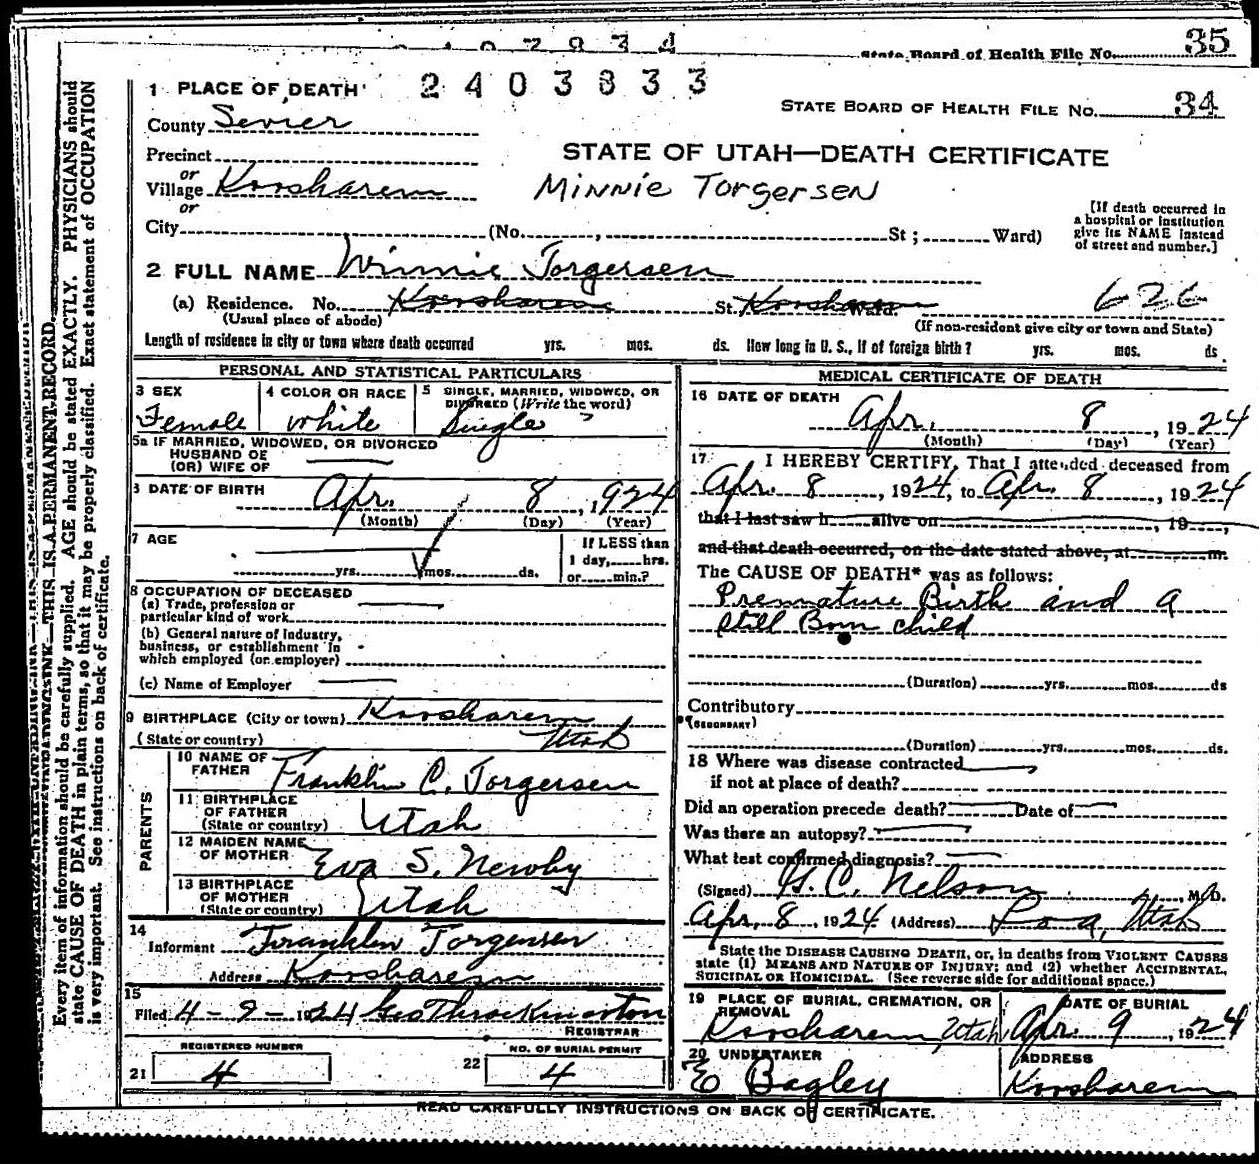 State Board of Health File No. 35
1 PLACE OF DEATH 2403833
STATE BOARD OF HEALTH FILE NO. 34
County Sevier
Precinct
or
Village Koosharem
or
STATE OF UTAH—DEATH CERTIFICATE
Minnie Torgersen
City (No. , St ; Ward)
[If death occurred in
a hospital or institution
give its NAME instead
of street and number.]
2 FULL NAME Winnie Torgersen
(a) Residence. No. Koosharem St. Koosharem Ward. 626
(Usual place of abode) (If non-resident give city or town and State)
Length of residence in city or town where death occurred yrs. mos. ds. How long in U. S., if of foreign birth? yrs. mos. ds
PERSONAL AND STATISTICAL PARTICULARS
3 SEX
Female
4 COLOR OR RACE
white
5 SINGLE, MARRIED, WIDOWED, OR
DIVORCED (Write the word)
Single
5a IF MARRIED, WIDOWED, OR DIVORCED
HUSBAND OF
(OR) WIFE OF
6 DATE OF BIRTH Apr. 8, 1924
(Month) (Day) (Year)
7 AGE
yrs. mos. ds.
If LESS than
1 day, hrs.
or min.?
8 OCCUPATION OF DECEASED
(a) Trade, profession or
particular kind of work
(b) General nature of Industry,
business, or establishment in
which employed (or employer)
(c) Name of Employer
9 BIRTHPLACE (City or town) Koosharem
(State or country) Utah
PARENTS
10 NAME OF
FATHER Franklin C. Torgersen
11 BIRTHPLACE
OF FATHER
(State or country) Utah
12 MAIDEN NAME
OF MOTHER Eva S. Newby
13 BIRTHPLACE
OF MOTHER
(State or country) Utah
14
Informant Franklin Torgensen
Address Koosharem
15
Filed 4-9-1924 Geo Throckmorton
REGISTRAR
REGISTERED NUMBER
21 4
NO. OF BURIAL PERMIT
22 4
MEDICAL CERTIFICATE OF DEATH
16 DATE OF DEATH
Apr. 8, 1924
(Month) (Day) (Year)
17 I HEREBY CERTIFY, That I attended deceased from
Apr. 8, 1924, to Apr. 8, 1924
that I last saw h alive on , 19 ,
and that death occurred, on the date stated above, at m.
The CAUSE OF DEATH* was as follows:
Premature Birth and a
still Born child
(Duration) yrs. mos. ds
Contributory
(SECONDARY)
(Duration) yrs. mos. ds.
18 Where was disease contracted
if not at place of death?
Did an operation precede death? Date of
Was there an autopsy?
What test confirmed diagnosis?
(Signed) G. C. Nelson, M.D.
Apr. 8, 1924 (Address) Loa, Utah
*State the DISEASE CAUSING DEATH, or, in deaths from VIOLENT CAUSES
state (1) MEANS AND NATURE OF INJURY; and (2) whether ACCIDENTAL,
SUICIDAL OR HOMICIDAL. (See reverse side for additional space.)
19 PLACE OF BURIAL, CREMATION, OR
REMOVAL
Koosharem, Utah
DATE OF BURIAL
Apr. 9, 1924
20 UNDERTAKER
E Bagley
ADDRESS
Koosharem
READ CAREFULLY INSTRUCTIONS ON BACK OF CERTIFICATE.
THIS IS A PERMANENT RECORD
Every item of information should be carefully supplied. AGE should be stated EXACTLY. PHYSICIANS should
state CAUSE OF DEATH in plain terms, so that it may be properly classified. Exact statement of OCCUPATION
is very important. See instructions on back of certificate.